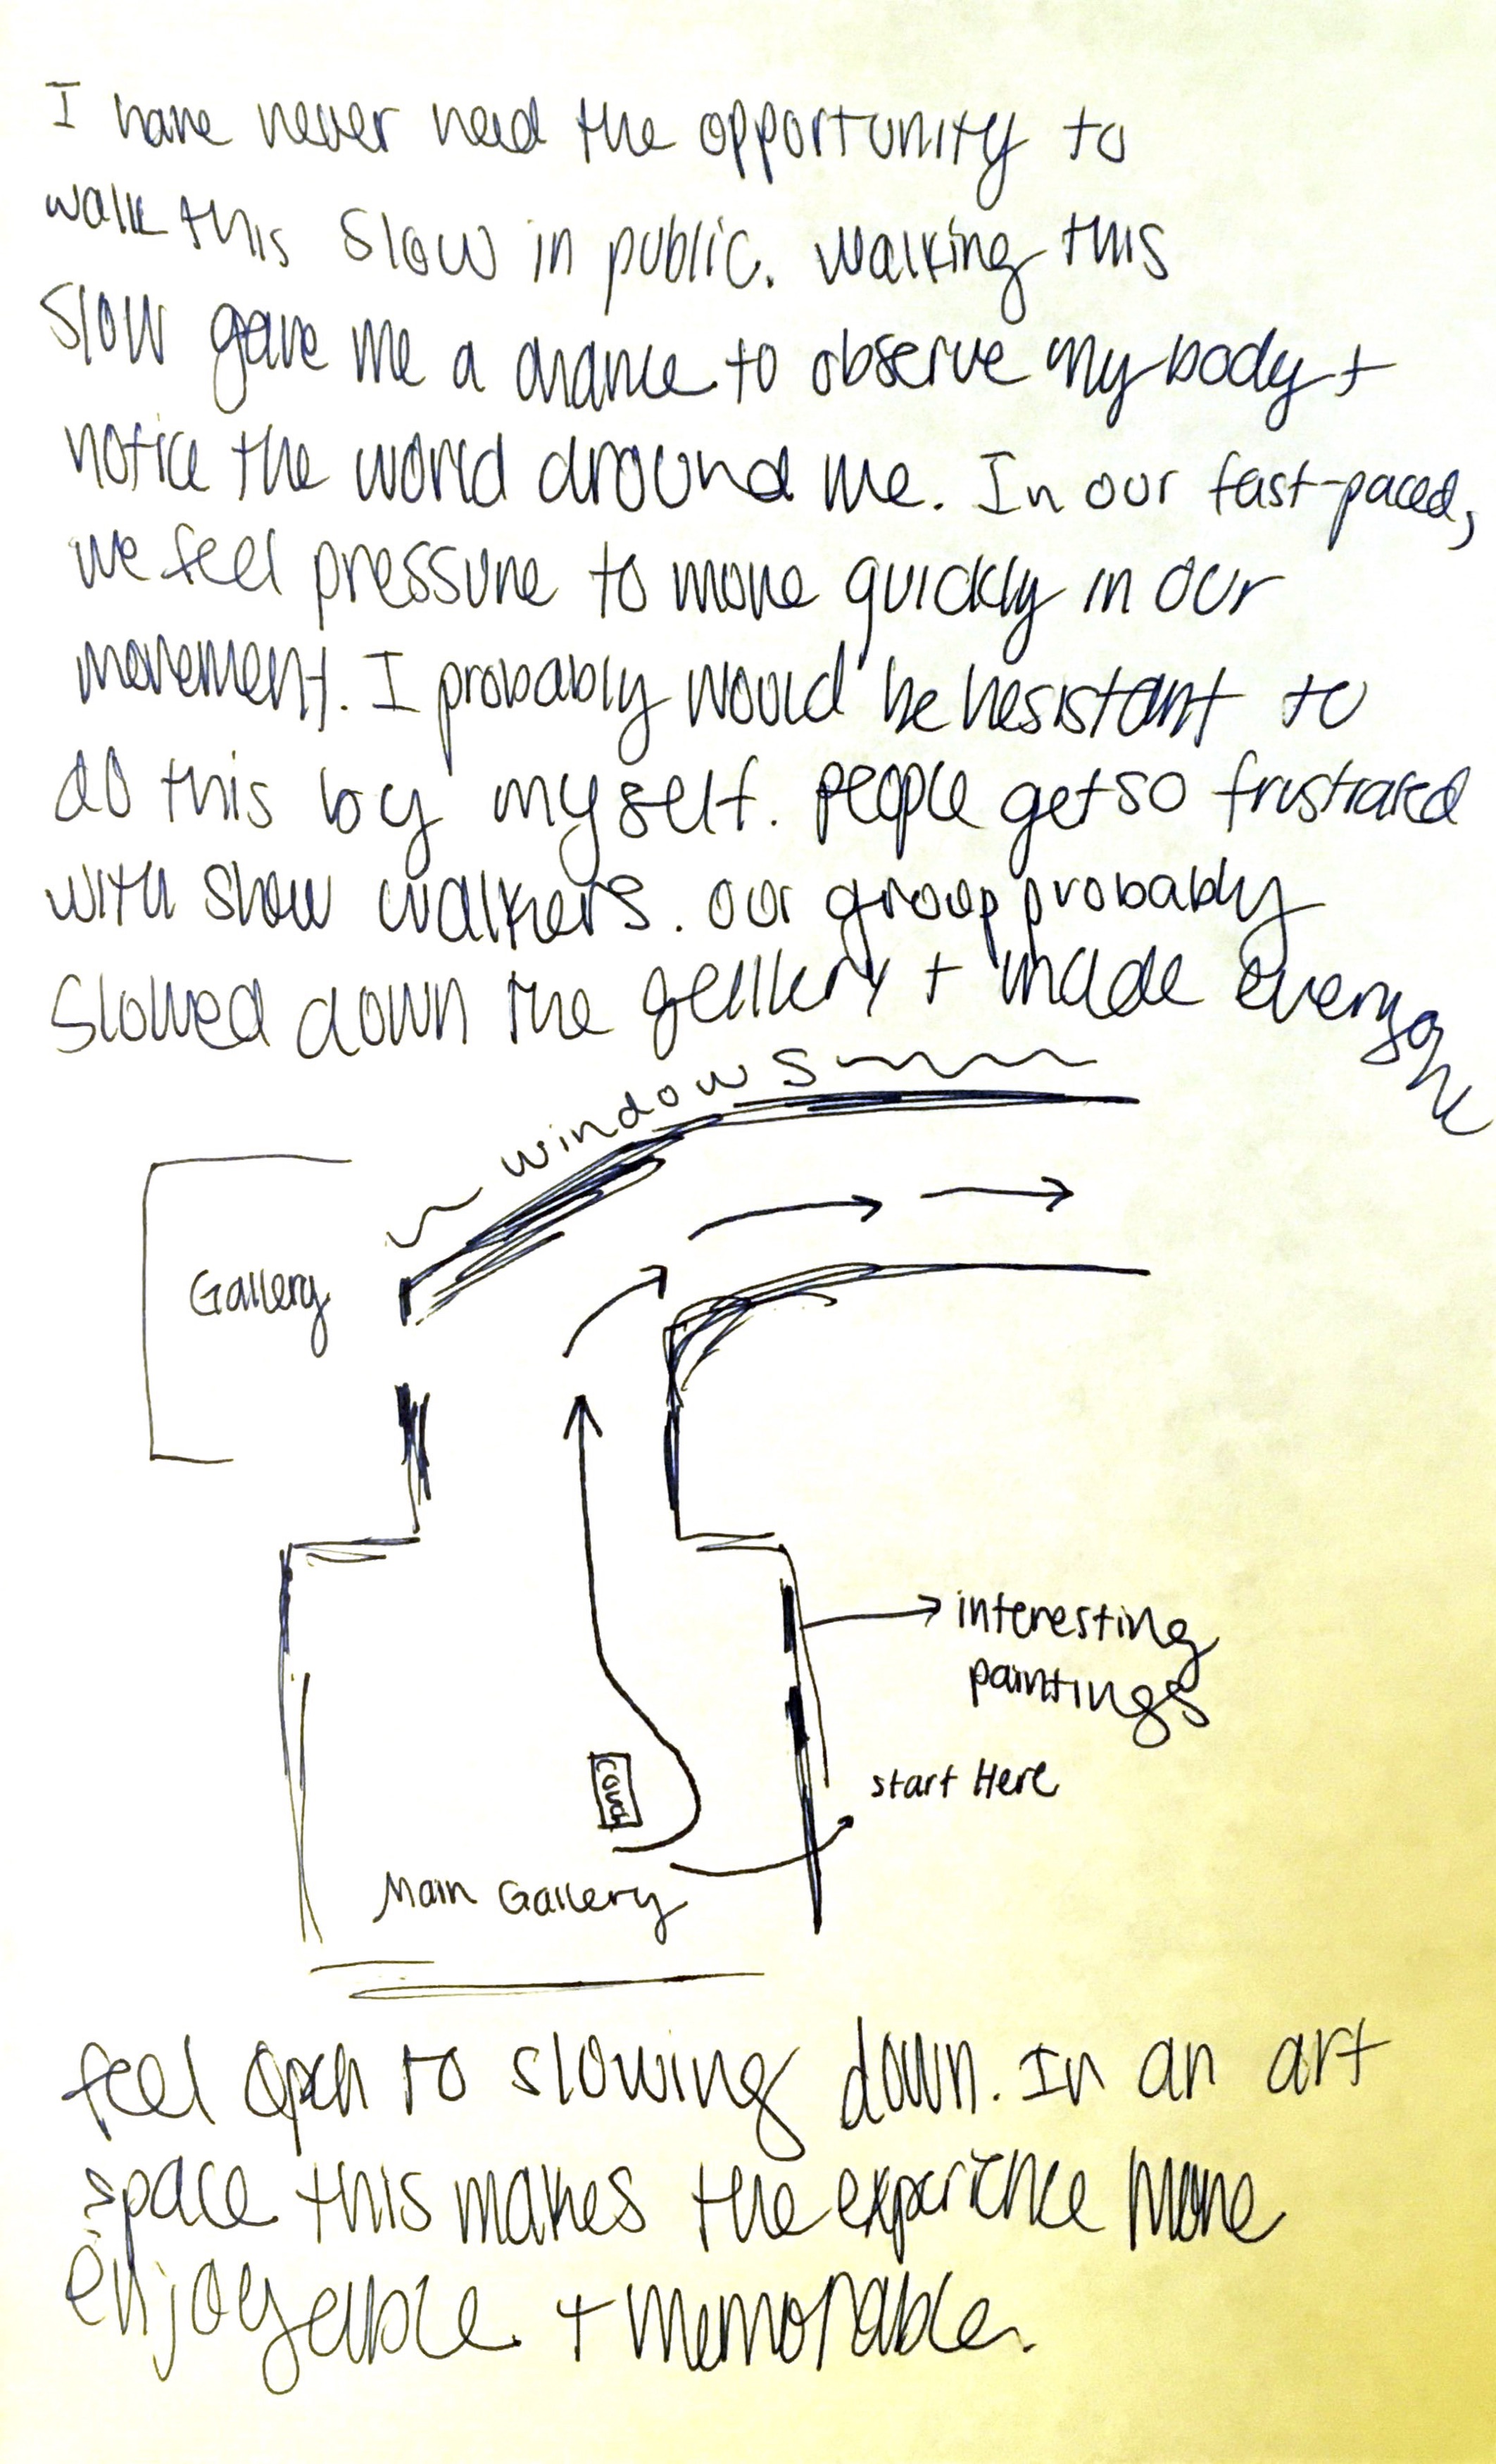 I have never head the opportunity to
walk this slow in public. walking this
slow gave me a chance to observe my body +
notice the world around me. In our fast-paced,
we feel pressure to move quickly in our
movement. I probably would be hesistant to
do this by myself. people get so frustrated
with slow walkers. our group probably
slowed down the gellery + made everyone
windows
Gallery
interesting
paintings
Couch
start Here
Main Gallery
feel open to slowing down. In an art
space this makes the experience more
enjoyeable + memorable.